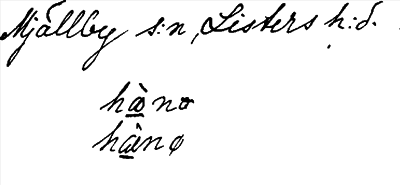 Mjällby s:n, Listers h:d.
hæ̀no
hæ̀nø